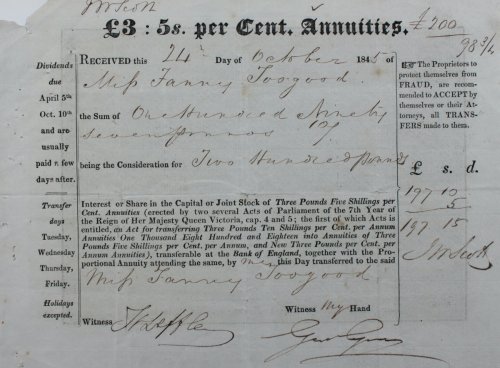 J W Scott
£3 : 5s. per Cent. Annuities.
£200
98 3/4
Dividends
due
April 5th
Oct. 10th
and are
usually
paid a few
days after.
RECEIVED this 24th Day of October 1845 of
Miss Fanny Toogood
the Sum of One Hundred Ninety
seven pounds 10/
being the Consideration for Two Hundred Pounds
The Proprietors to
protect themselves from
FRAUD, are recom-
mended to ACCEPT by
themselves or their At-
torneys, all TRANS-
FERS made to them.
£ s. d.
197 10
5
197 15
J W Scott
Transfer
days
Tuesday,
Wednesday
Thursday,
Friday.
Holidays
excepted.
Interest or Share in the Capital or Joint Stock of Three Pounds Five Shillings per
Cent. Annuities (erected by two several Acts of Parliament of the 7th Year of
the Reign of Her Majesty Queen Victoria, cap. 4 and 5; the first of which Acts is
entitled, an Act for transferring Three Pounds Ten Shillings per Cent. per Annum
Annuities One Thousand Eight Hundred and Eighteen into Annuities of Three
Pounds Five Shillings per Cent. per Annum, and New Three Pounds per Cent.
per Annum Annuities), transferable at the Bank of England, together with the Pro-
portional Annuity attending the same, by me this Day transferred to the said
Miss Fanny Toogood
Witness my Hand
Witness